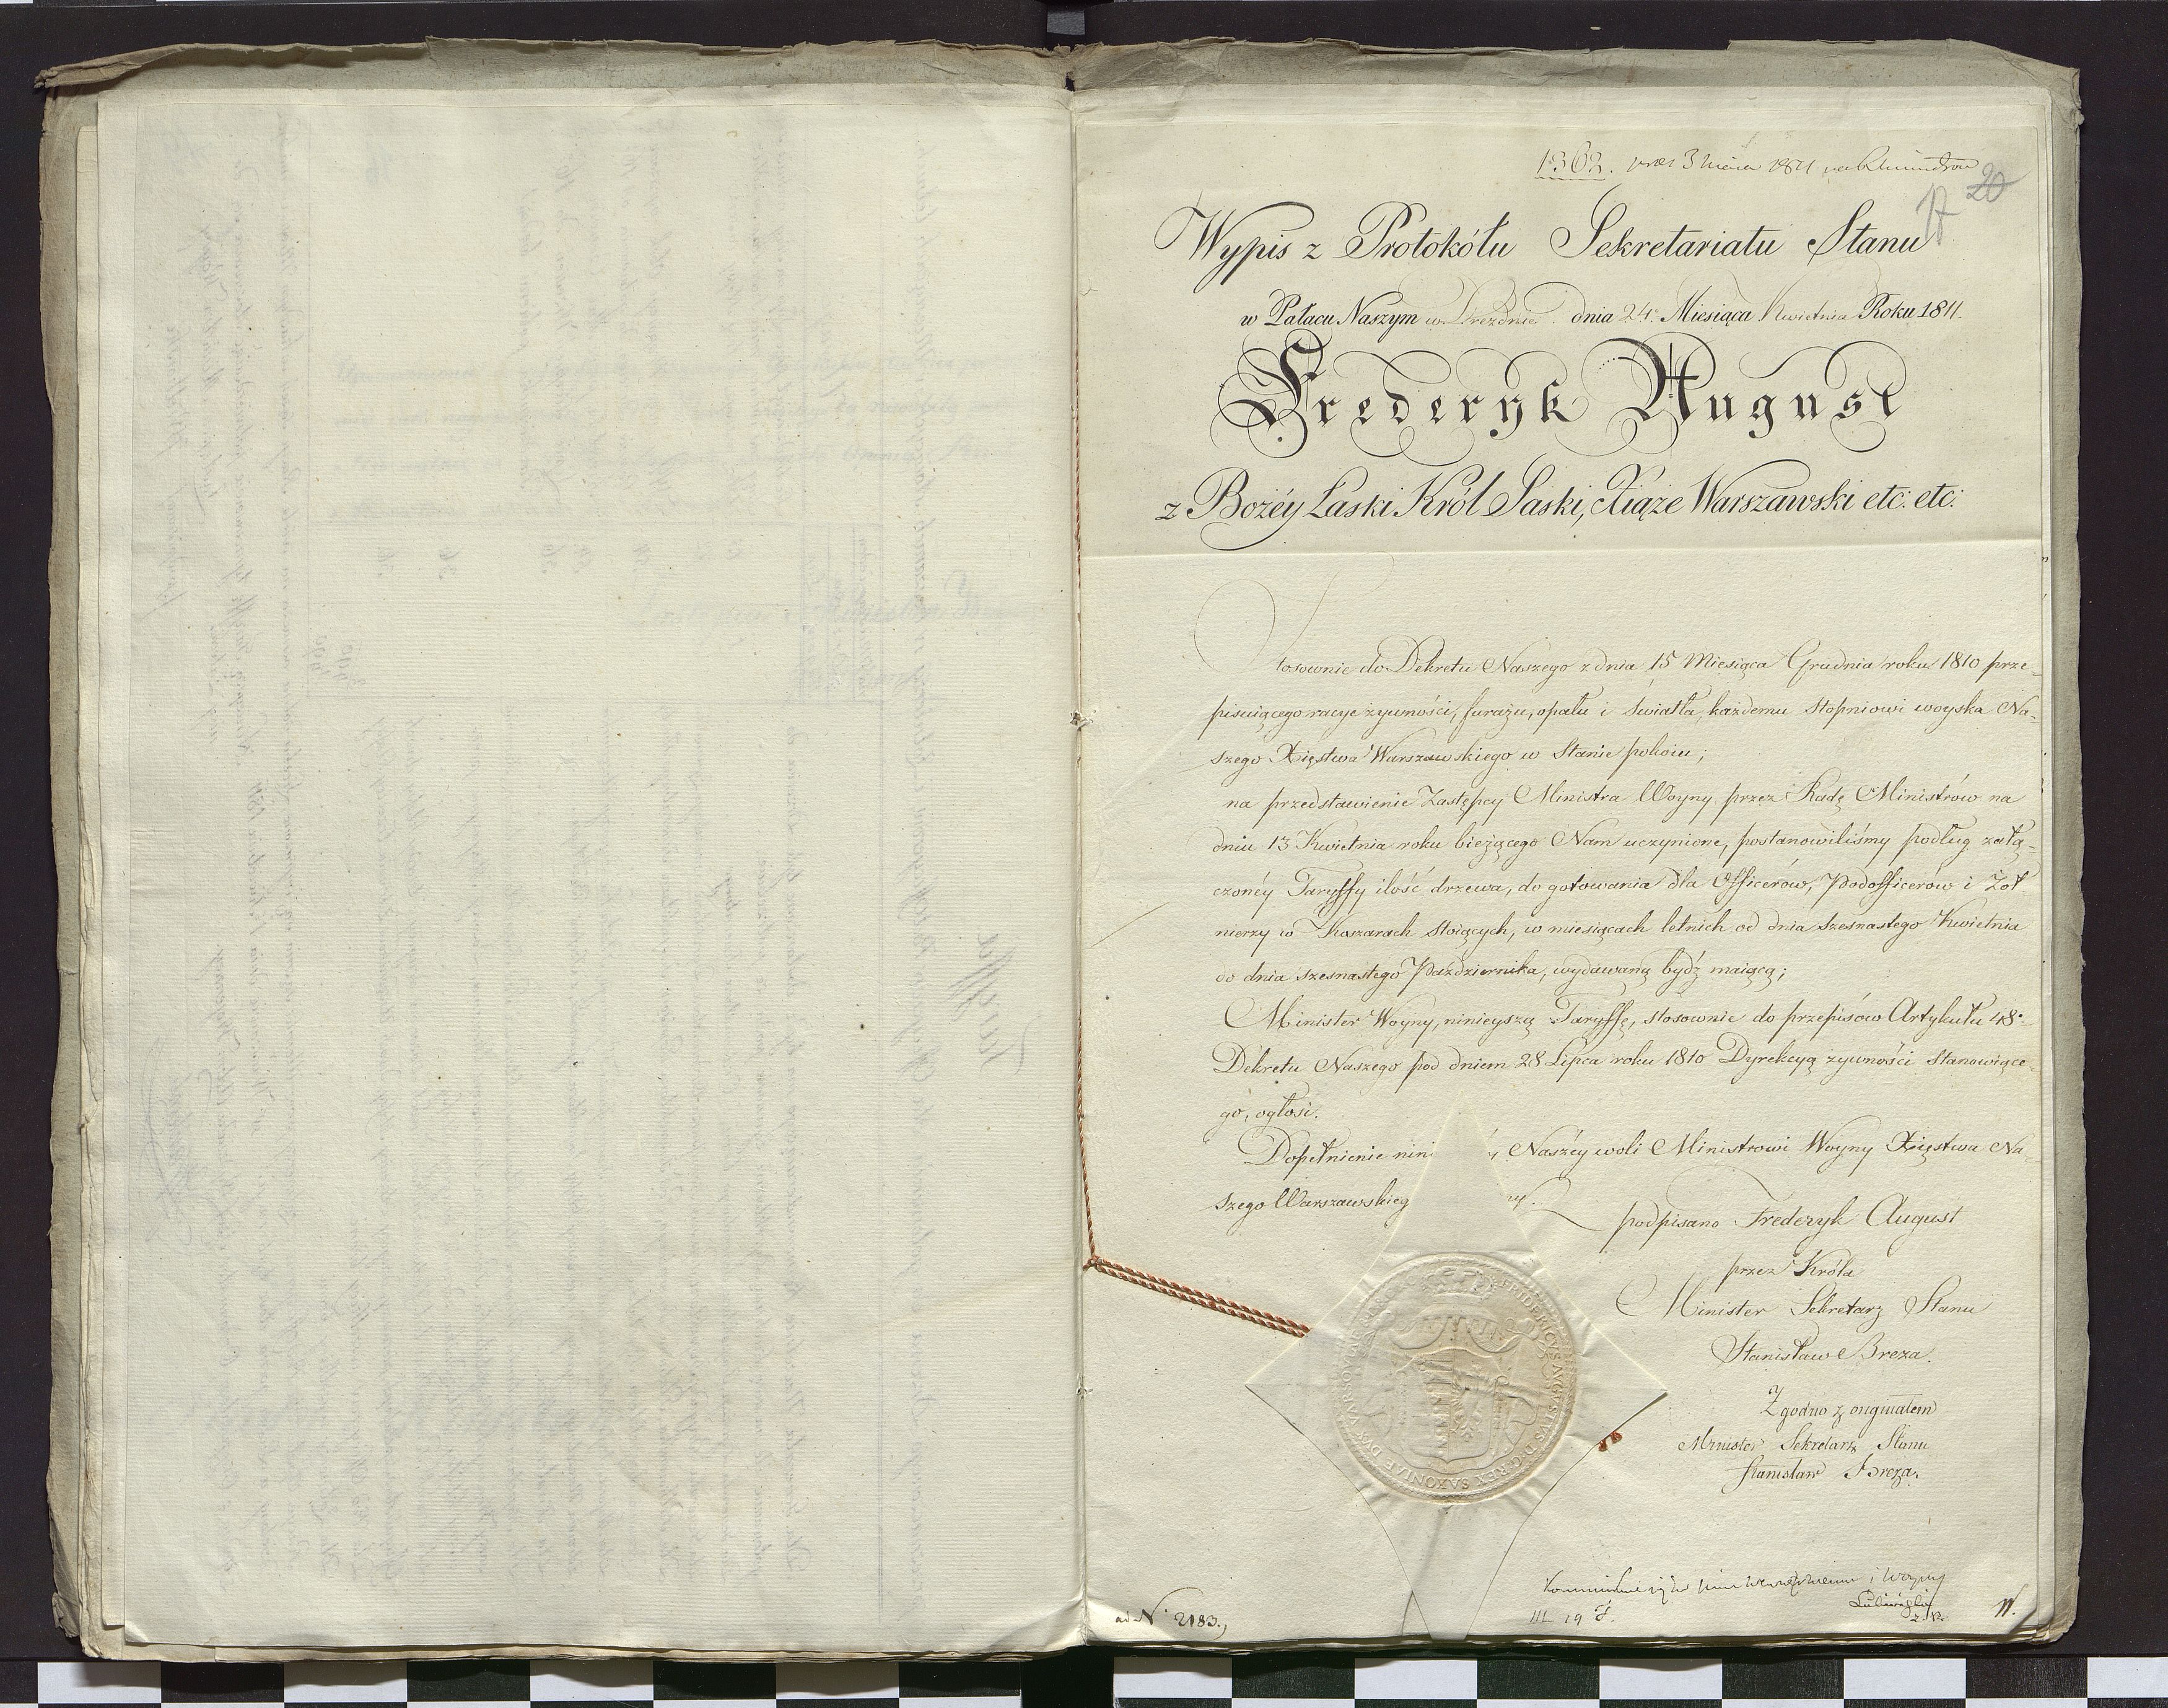 1363. 3 1811
20
17
Wypis z Protokółu Sekretariatu Stanu
w Pałacu Naszym w Dreznie dnia 24. Miesiąca Kwietnia Roku 1811.
Fryderyk August
z Bożéy Łaski Król Saski, Xiąże Warszawski etc: etc:
Stosownie do Dekretu Naszego z dnia 15 Miesiąca Grudnia roku 1810 prze-
pisuiącego racye żywności, furażu, opału i światła każdemu stopniowi woyska Na-
szego Xięstwa Warszawskiego w Stanie pokoiu;
na przedstawienie Zastępcy Ministra Woyny przez Radę Ministrów na
dniu 13 Kwietnia roku bieżącego Nam uczynione, postanowiliśmy podług załą-
czonéy Taryffy ilość drzewa, do gotowania dla Officerów, Podofficerów i Żoł
nierzy w Koszarach stoiących, w miesiącach letnich od dnia szesnastego Kwietnia
do dnia szesnastego Października, wydawaną bydź maiącą;
Minister Woyny, ninieyszą Taryffę, stosownie do przepisów Artykułu 48.
Dekretu Naszego pod dniem 28 Lipca roku 1810 Dyrekcyą żywności stanowiące-
go, ogłosi.
Dopełnienie nini y Naszéy woli Ministrowi Woyny Xięstwa Na-
szego Warszawskieg my.
podpisano Frederyk August
przez Króla
Minister Sekretarz Stanu
Stanisław Breza.
Zgodno z originałem
Minister Sekretarz Stanu
Stanisław Breza.
FRIDERICVS AVGVSTVS D. G. REX SAXONIAE DVX VARSOVIAE
i Woyny
III 19
ad N. 2183.,
11.